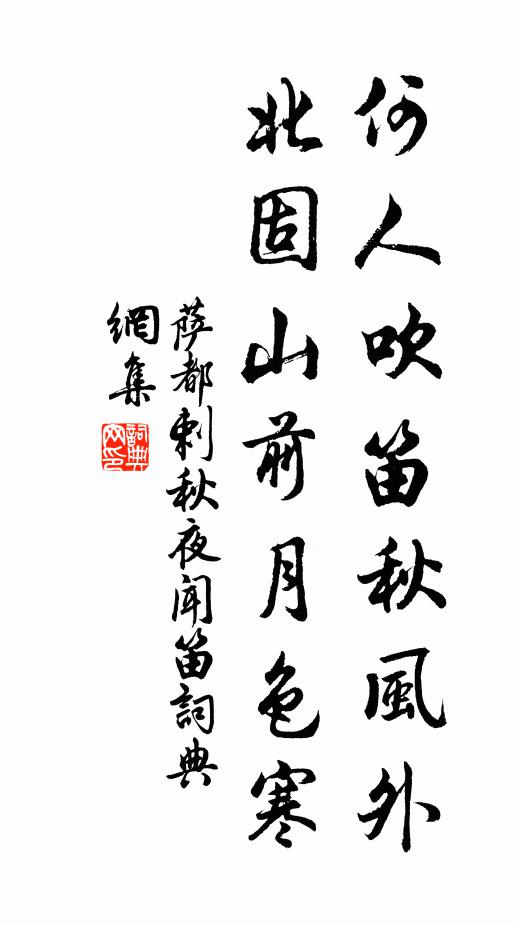 何人吹笛秋風外
北固山前月色寒
萨都剌秋夜闻笛詞典
網集
詞典網印